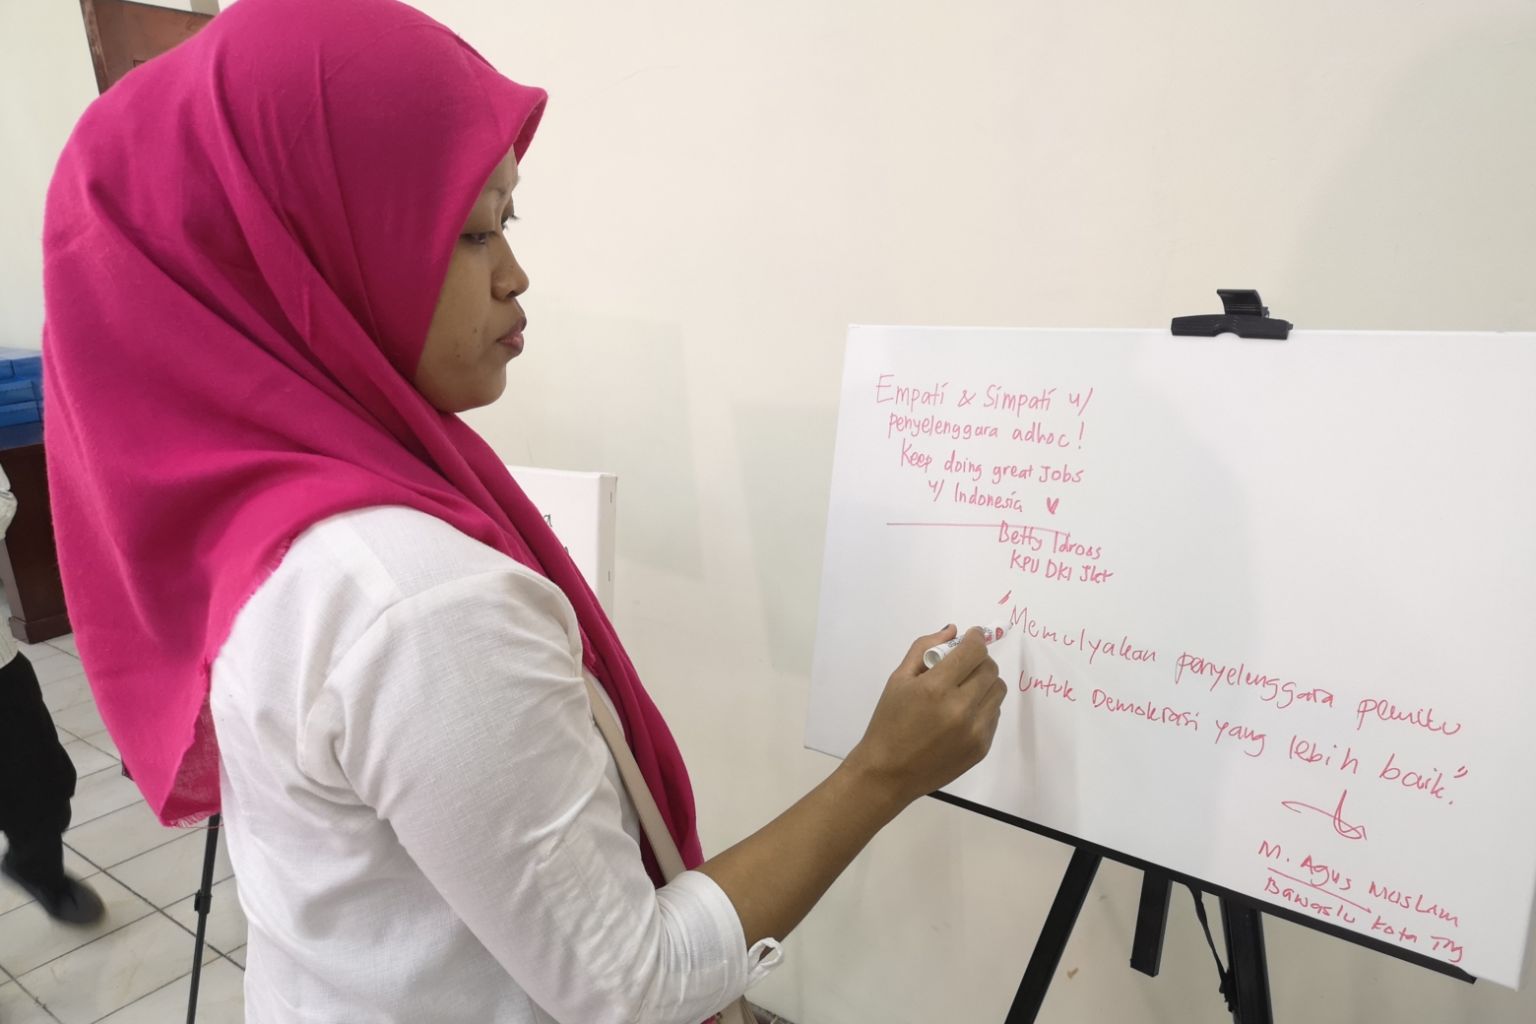 Empati & Simpati u/
penyelenggara adhoc!
Keep doing great Jobs
u/ Indonesia ♥
Betty Idroos
KPU DKI Jkt
"Memulyakan penyelenggara pemilu
untuk Demokrasi yang lebih baik."
M. Agus Muslam
Bawaslu Kota Tng